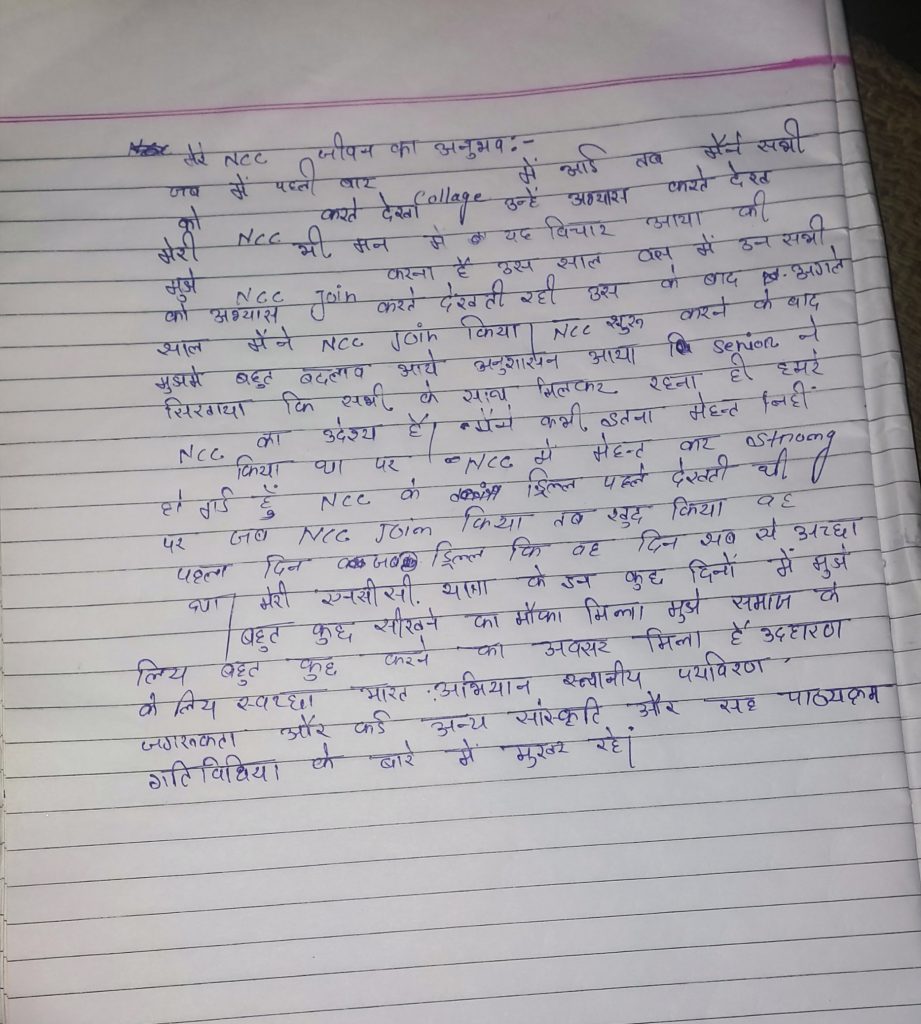 मेरे NCC जीवन का अनुभव:-
जब में पहली बार Collage में आई तब मैंने सभी
को NCC करते देखा उन्हें अभ्यास करते देख
मेरी भी मन में यह विचार आया की
मुझे NCC Join करना है उस साल बस में उन सभी
को अभ्यास करते देखती रही उस के बाद अगले
साल मैंने NCC Join किया| NCC शुरू करने के बाद
मुझमे बहुत बदलाव आये अनुशासन आया senior ने
सिखाया कि सभी के साथ मिलकर रहना ही हमारे
NCC का उदेश्य है| मैंने कभी इतना मेहनत नहीं
किया था पर NCC मे मेहनत कर strong
हो गई हूँ NCC के ड्रिल्ल पहले देखती थी
पर जब NCC Join किया तब खुद किया वह
पहला दिन जब ड्रिल्ल कि वह दिन सब से अच्छा
था| मेरी एनसीसी. यात्रा के इन कुछ दिनों में मुझे
बहुत कुछ सीखने का मौका मिला मुझे समाज के
लिय बहुत कुछ करने का अवसर मिला है उदहारण
के लिय स्वच्छा भारत अभियान स्थानीय पर्यावरण
जगरुकता और कई अन्य सांस्कृति और सह पाठ्यक्रम
गतिविधिया के बारे में मुखर रहे|